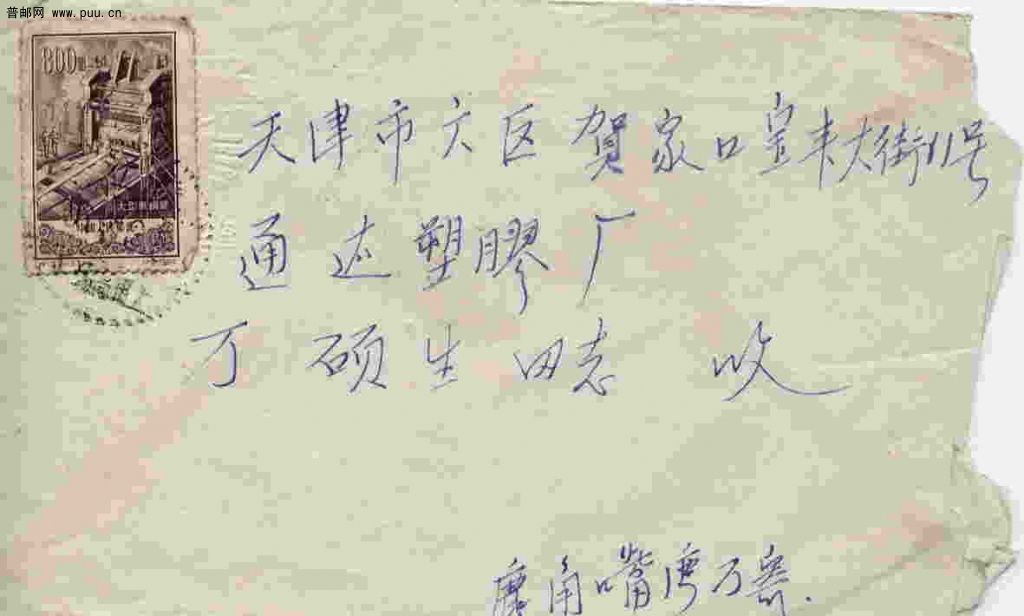 普邮网 www.puu.cn
800
天津市六区贺家口宝丰大街11号
通达塑膠厂
丁硕生同志 收
鹿角嘴唐万